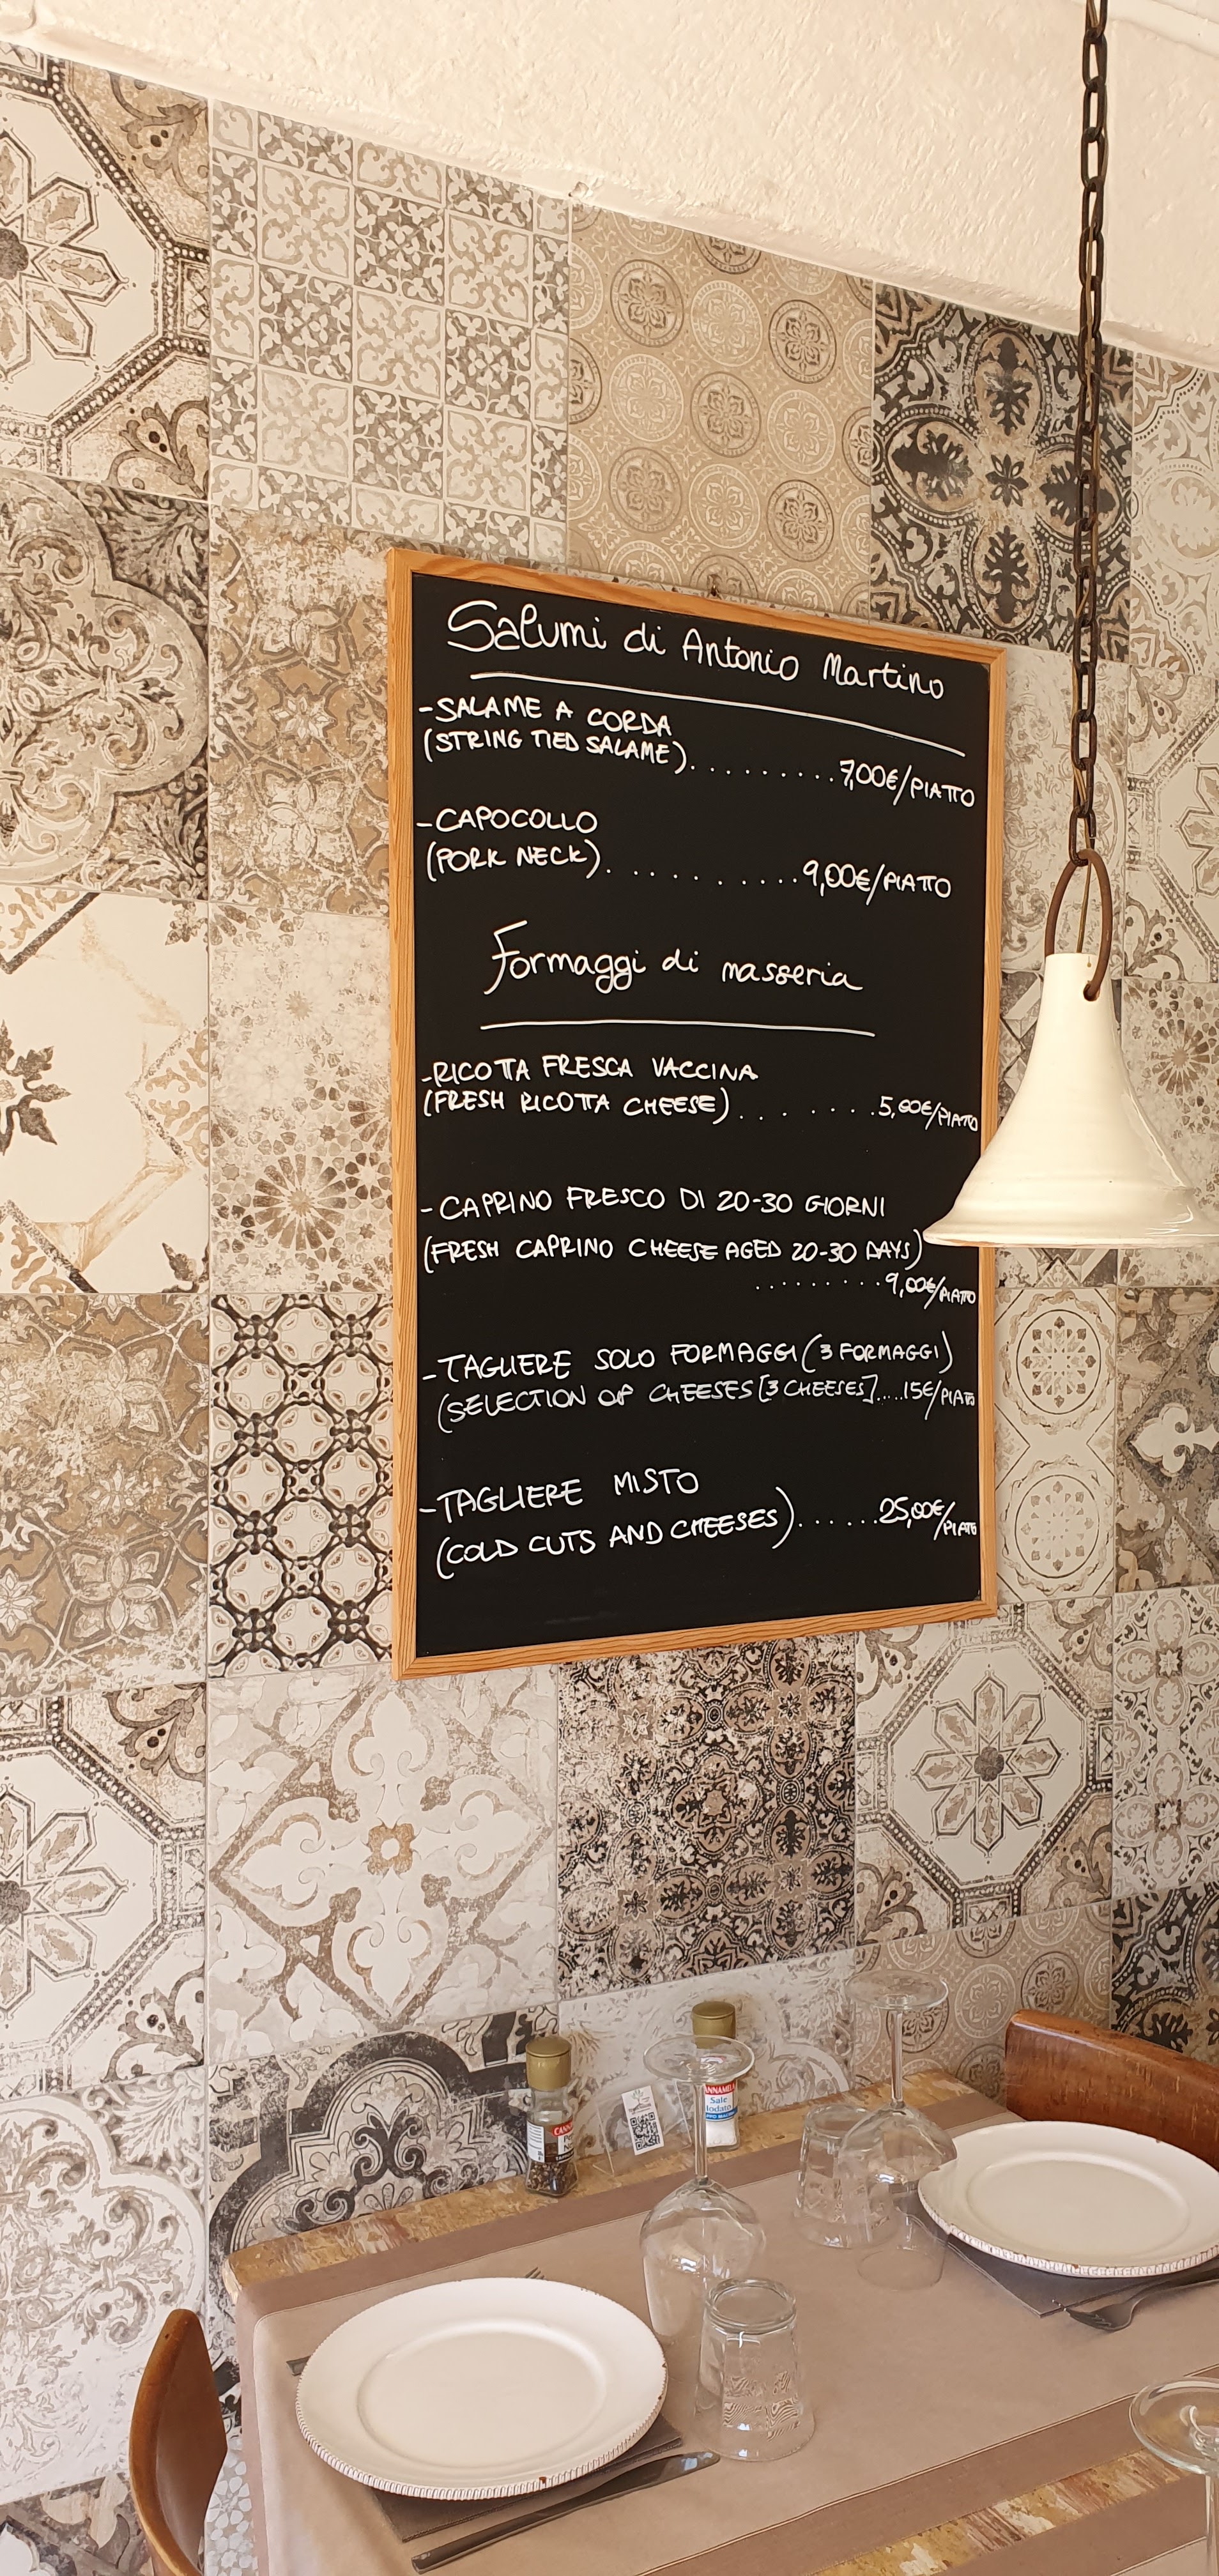 Salumi di Antonio Martino
-SALAME A CORDA
(STRING TIED SALAME).........7,00€/PIATTO
-CAPOCOLLO
(PORK NECK)..........9,00€/PIATTO
Formaggi di masseria
-RICOTTA FRESCA VACCINA
(FRESH RICOTTA CHEESE).......5,00€/PIATTO
-CAPRINO FRESCO DI 20-30 GIORNI
(FRESH CAPRINO CHEESE AGED 20-30 DAYS)
.........9,00€/PIATTO
-TAGLIERE SOLO FORMAGGI (3 FORMAGGI)
(SELECTION OF CHEESES [3 CHEESES].....15€/PIATTO
-TAGLIERE MISTO
(COLD CUTS AND CHEESES)......25,00€/PIATTO
Sale